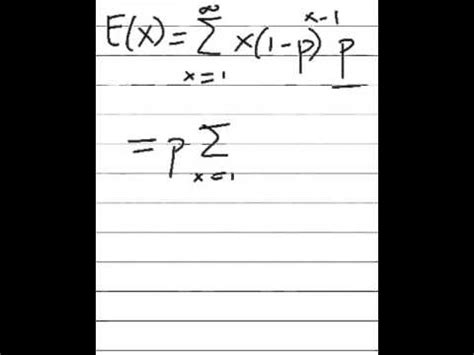 E(x) = ∞∑x=1 x(1-p)^x-1 p
= p ∑x=1